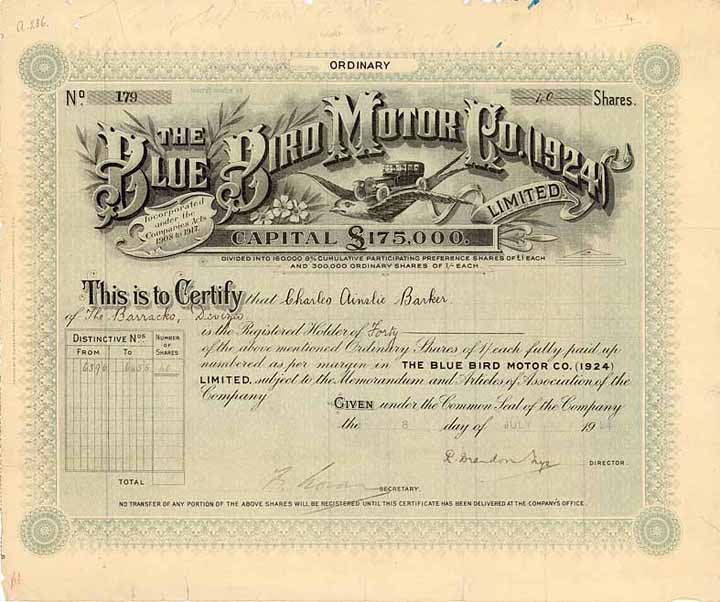 A.236.
ORDINARY
No 179 40 Shares.
THE BLUE BIRD MOTOR CO. (1924)
LIMITED
Incorporated
under the
Companies Acts
1908 to 1917.
CAPITAL £175,000.
DIVIDED INTO 160,000 8% CUMULATIVE PARTICIPATING PREFERENCE SHARES OF £1 EACH
AND 300,000 ORDINARY SHARES OF 1/- EACH.
This is to Certify that Charles Ainslie Barker.
of The Barracks, Devizes
is the Registered Holder of Forty
of the above mentioned Ordinary Shares of 1/ each fully paid up
numbered as per margin in THE BLUE BIRD MOTOR CO. (1924)
LIMITED, subject to the Memorandum and Articles of Association of the
Company
DISTINCTIVE Nos NUMBER OF SHARES
FROM TO
40
TOTAL
GIVEN under the Common Seal of the Company
the 8 day of JULY 1924
DIRECTOR.
SECRETARY.
NO TRANSFER OF ANY PORTION OF THE ABOVE SHARES WILL BE REGISTERED UNTIL THIS CERTIFICATE HAS BEEN DELIVERED AT THE COMPANY'S OFFICE.